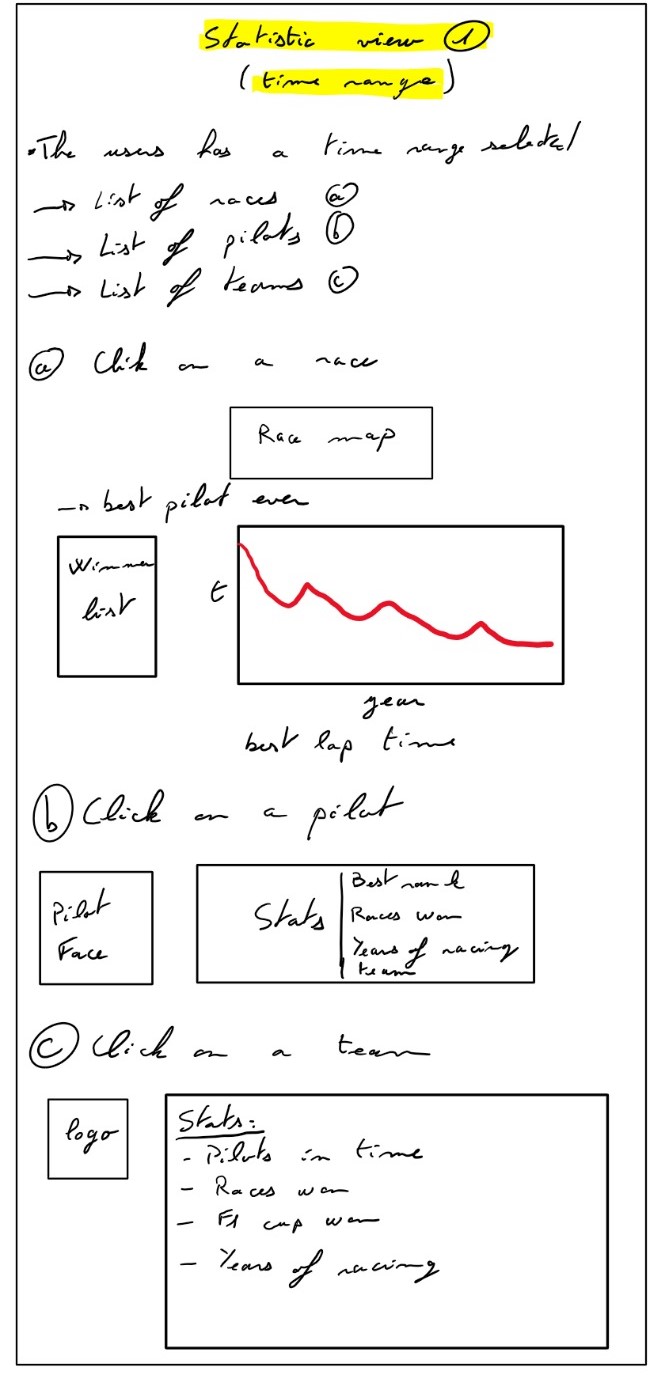 Statistic view 1
(time range)
•The users has a time range selected
→ List of races a
→ List of pilots b
→ List of teams c
a Clik on a race
Race map
→ best pilot ever
Winner
list
t
year
best lap time
b Click on a pilot
Pilot
Face
Stats
Best rank
Races won
Years of racing
team
c Click on a team
logo
Stats:
- Pilots in time
- Races won
- F1 cup won
- Years of racing